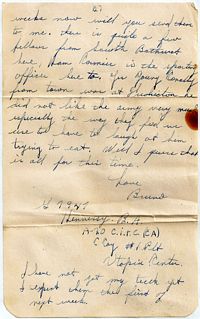 weeks now will you send them
to me. there is quite a few
fellows from South Bathurst
here, Ham Cormier is the sports
officer here to, Yes Young Kenally
from town was at Fredericton he
did not like the army very much
especially the way they fed we
use to have to laugh at him
trying to eat. Well I guess that
is all for this time.
Love
G 7957
Hennessy B.A.
A-20 C.I.T.C (CA)
C Coy #1 Plt
Utopia Centre.
I have not got my teeth yet
I expect them the first of
next week.